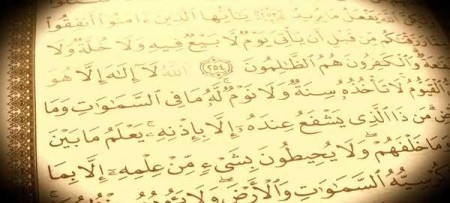 ٱللَّهَ يَفْعَلُ مَا يُرِيدُ ٢٥٣ يَٰٓأَيُّهَا ٱلَّذِينَ ءَامَنُوٓا۟ أَنفِقُوا۟
رَزَقْنَٰكُم مِّن قَبْلِ أَن يَأْتِىَ يَوْمٌ لَّا بَيْعٌ فِيهِ وَلَا خُلَّةٌ وَلَا
وَٱلْكَٰفِرُونَ هُمُ ٱلظَّٰلِمُونَ ٢٥٤ ٱللَّهُ لَآ إِلَٰهَ إِلَّا هُوَ
ٱلْقَيُّومُ لَا تَأْخُذُهُۥ سِنَةٌ وَلَا نَوْمٌ لَّهُۥ مَا فِى ٱلسَّمَٰوَٰتِ وَمَا
مَن ذَا ٱلَّذِى يَشْفَعُ عِندَهُۥٓ إِلَّا بِإِذْنِهِۦ يَعْلَمُ مَا بَيْنَ
وَمَا خَلْفَهُمْ وَلَا يُحِيطُونَ بِشَىْءٍ مِّنْ عِلْمِهِۦٓ إِلَّا بِمَا
كُرْسِيُّهُ ٱلسَّمَٰوَٰتِ وَٱلْأَرْضَ وَلَا